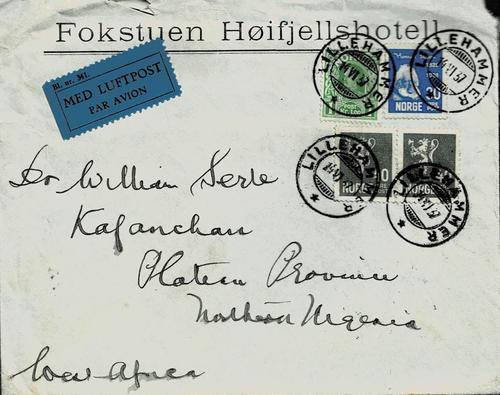 Fokstuen Høifjellshotell
Bl. nr. 341.
MED LUFTPOST
PAR AVION
LILLEHAMMER
LILLEHAMMER
NORGE
LILLEHAMMER
LILLEHAMMER
NORGE
NORGE
Dr William Serle
Kafanchan
Plateau Province
Northern Nigeria
West Africa